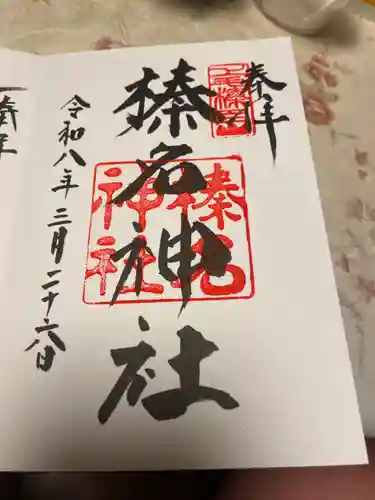 奉拝
榛名神社
榛名
神社
令和八年三月二十六日
奉拝